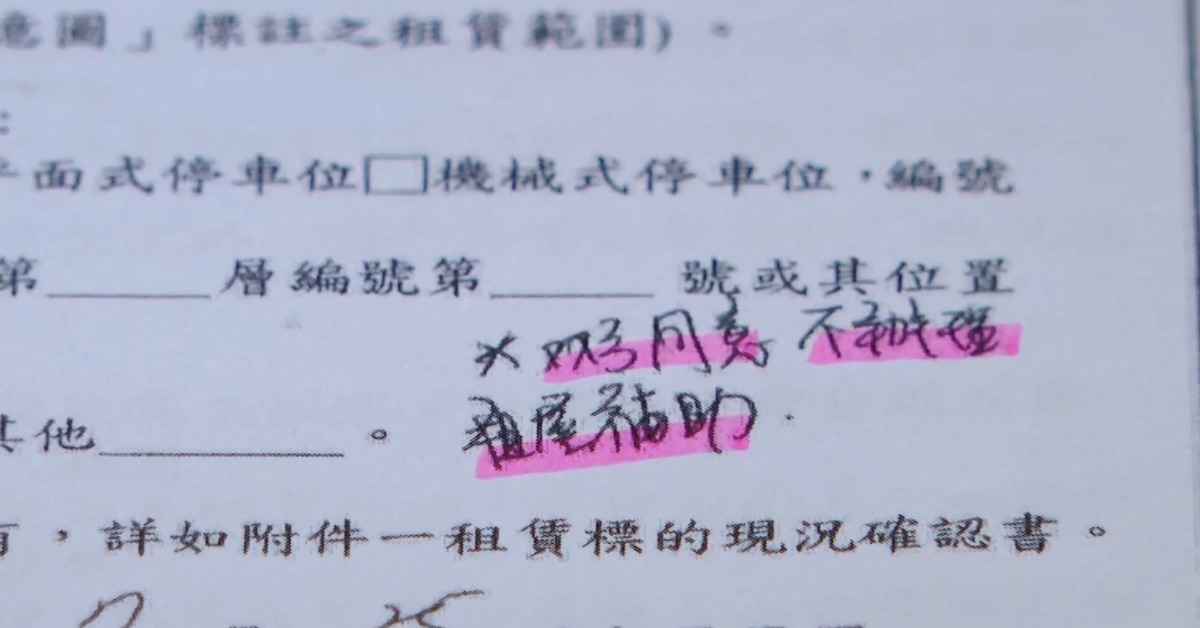 意圖」標註之租賃範圍)。
:
平面式停車位□機械式停車位,編號
第______層編號第______號或其位置
× 双方同意 不辦理
其他________。
租屋補助.
有,詳如附件一租賃標的現況確認書。